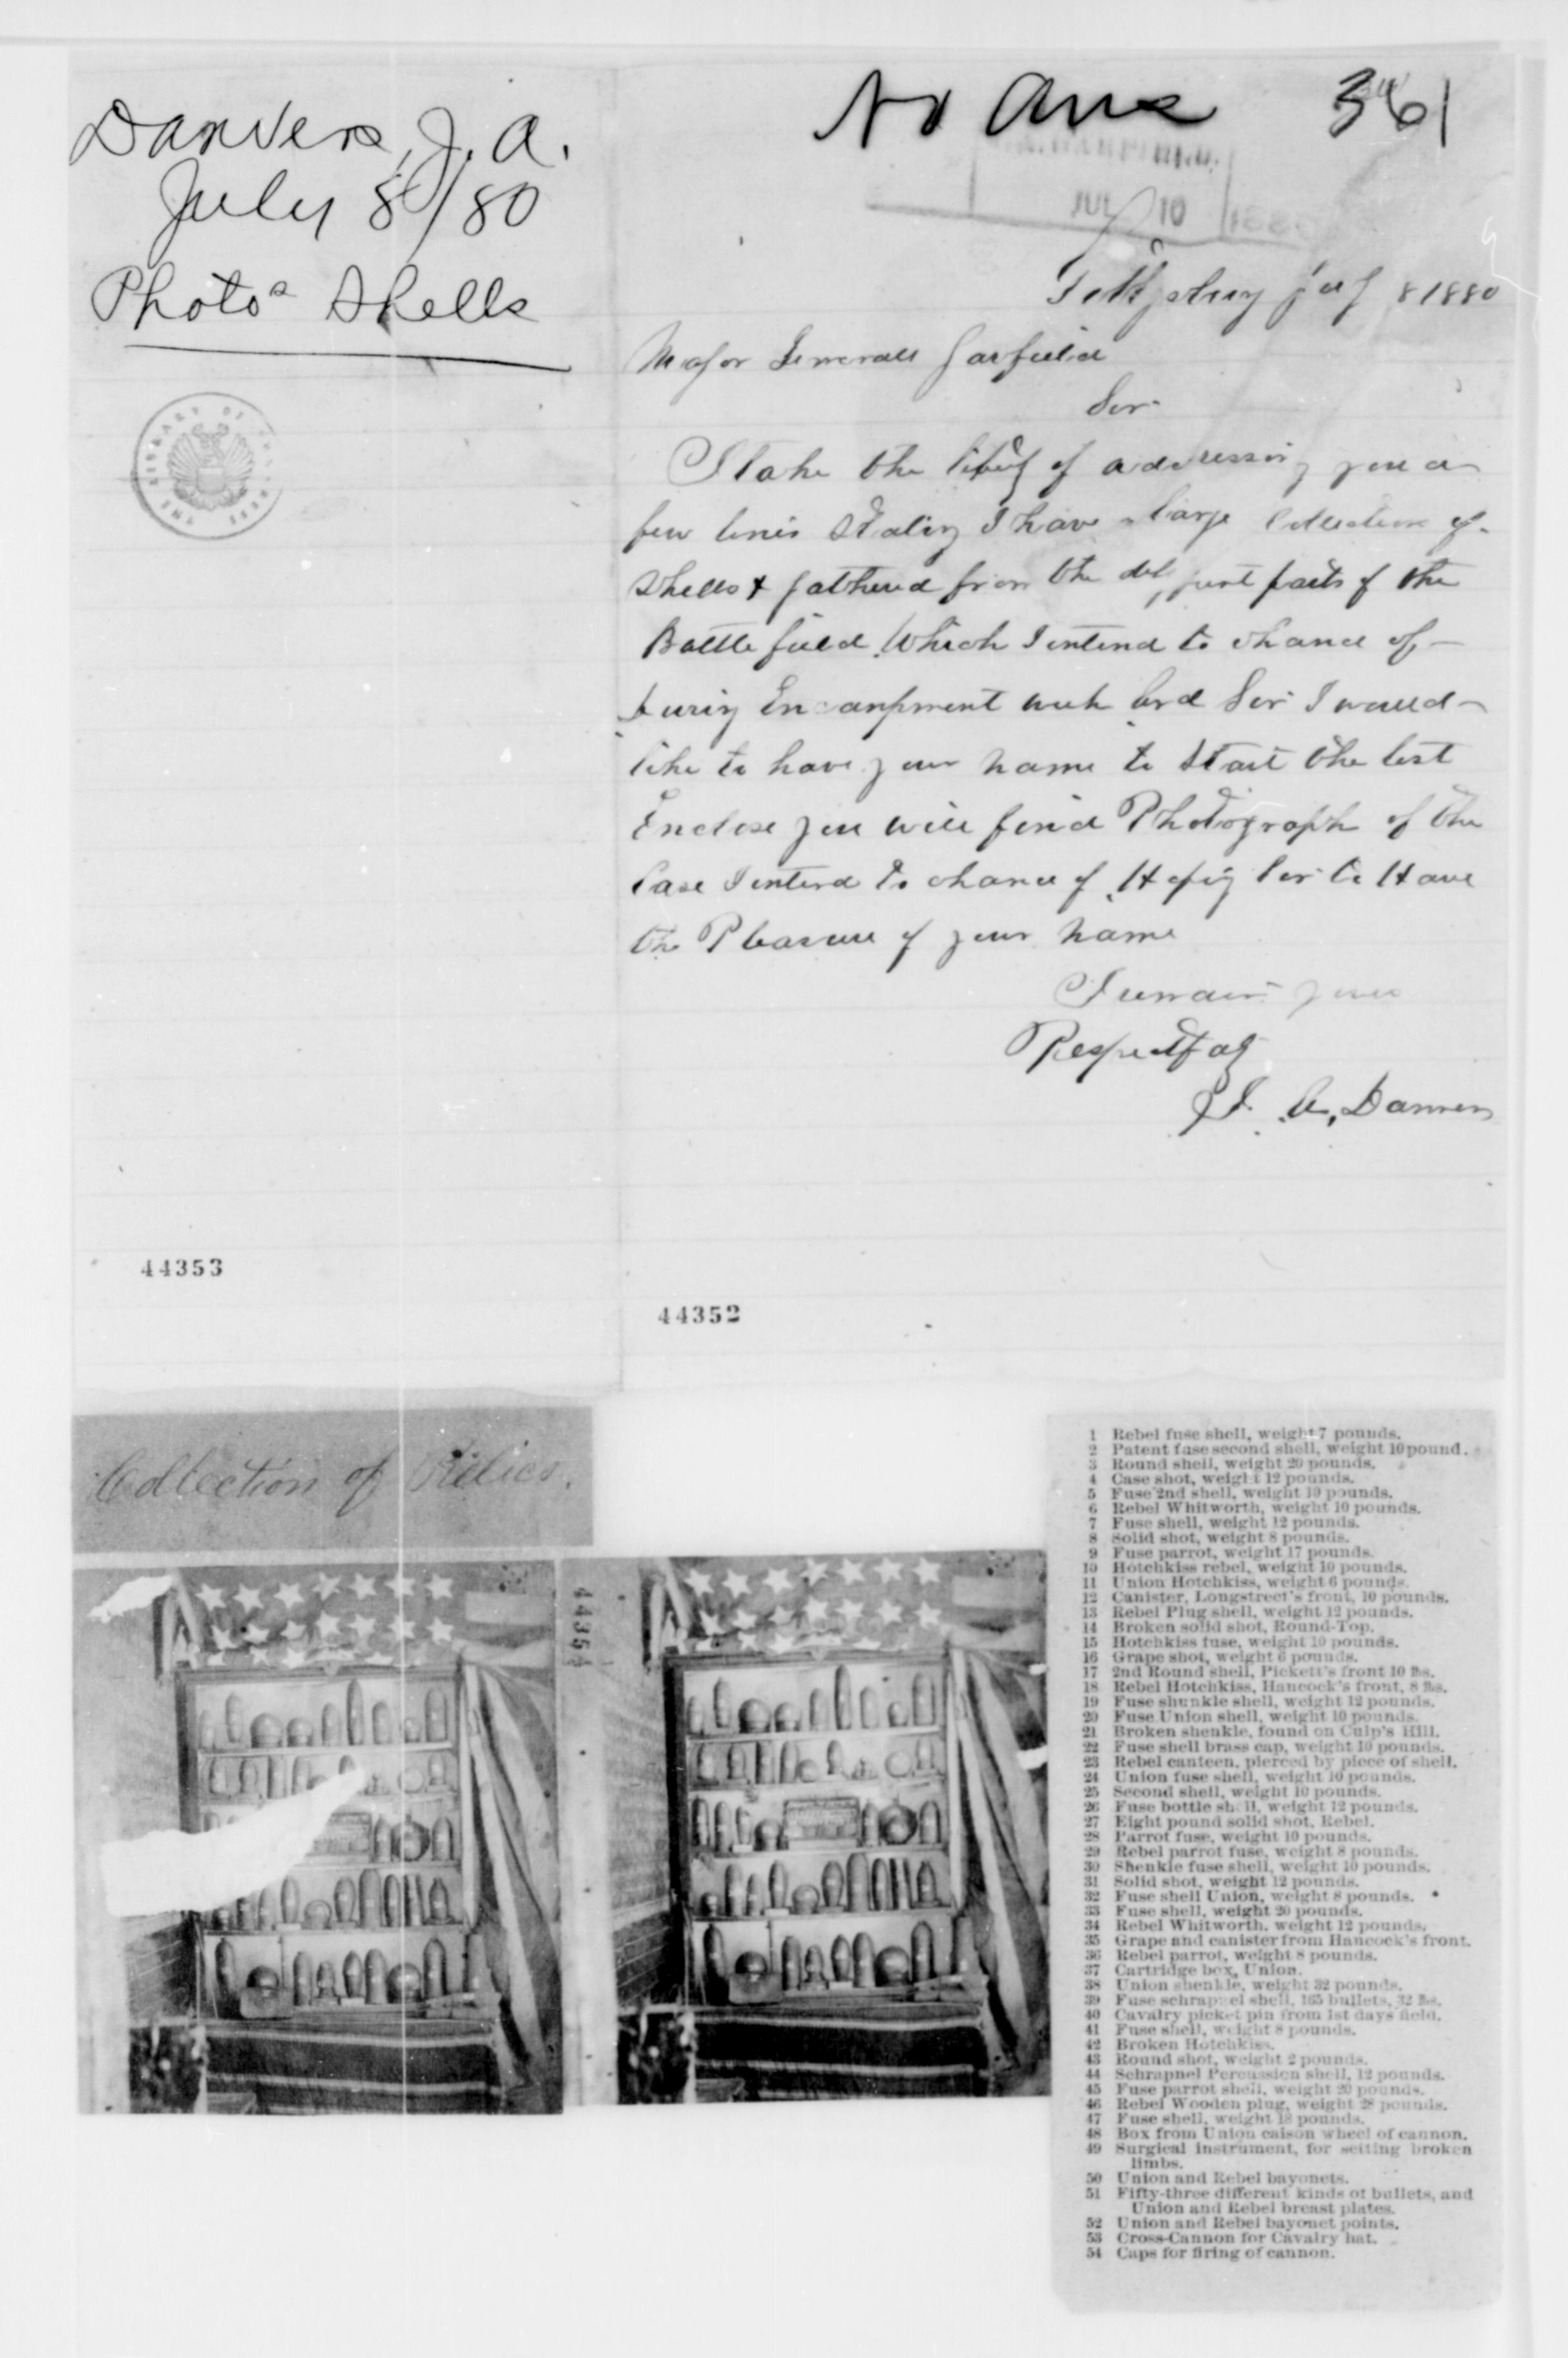 Danvers, J. A.
July 8/80
Photos Shells
THE LIBRARY OF CONGRESS
44353
No Ans 361
JUL 10 1880
Gettysburg July 8 1880
Major Generall Garfield
Sir
I take the liberty of addressing you a
few lines Stating I have a large Collection of
Shells & gathered from the different parts of the
Battle field Which I intend to chance of
During Encampment week And Sir I would
like to have your name to Start the list
Enclose you will find Photograph of the
Case I intend to chance of Hoping Sir to Have
the Pleasure of your name
I remain yours
Respectfuly
J. A. Danners
44352
Collection of Relics.
44354
1 Rebel fuse shell, weight 7 pounds.
2 Patent fuse second shell, weight 10 pound.
3 Round shell, weight 20 pounds.
4 Case shot, weight 12 pounds.
5 Fuse 2nd shell, weight 10 pounds.
6 Rebel Whitworth, weight 10 pounds.
7 Fuse shell, weight 12 pounds.
8 Solid shot, weight 8 pounds.
9 Fuse parrot, weight 17 pounds.
10 Hotchkiss rebel, weight 10 pounds.
11 Union Hotchkiss, weight 6 pounds.
12 Canister, Longstreet's front, 10 pounds.
13 Rebel Plug shell, weight 12 pounds.
14 Broken solid shot, Round-Top.
15 Hotchkiss fuse, weight 10 pounds.
16 Grape shot, weight 6 pounds.
17 2nd Round shell, Pickett's front 10 lbs.
18 Rebel Hotchkiss, Hancock's front, 8 lbs.
19 Fuse shunkle shell, weight 12 pounds.
20 Fuse Union shell, weight 10 pounds.
21 Broken shenkle, found on Culp's Hill.
22 Fuse shell brass cap, weight 10 pounds.
23 Rebel canteen, pierced by piece of shell.
24 Union fuse shell, weight 10 pounds.
25 Second shell, weight 10 pounds.
26 Fuse bottle shell, weight 12 pounds.
27 Eight pound solid shot, Rebel.
28 Parrot fuse, weight 10 pounds.
29 Rebel parrot fuse, weight 8 pounds.
30 Shenkle fuse shell, weight 10 pounds.
31 Solid shot, weight 12 pounds.
32 Fuse shell Union, weight 8 pounds.
33 Fuse shell, weight 20 pounds.
34 Rebel Whitworth, weight 12 pounds.
35 Grape and canister from Hancock's front.
36 Rebel parrot, weight 8 pounds.
37 Cartridge box, Union.
38 Union shenkle, weight 32 pounds.
39 Fuse schrapnel shell, 165 bullets, 32 lbs.
40 Cavalry picket pin from 1st days field.
41 Fuse shell, weight 8 pounds.
42 Broken Hotchkiss.
43 Round shot, weight 2 pounds.
44 Schrapnel Percussion shell, 12 pounds.
45 Fuse parrot shell, weight 20 pounds.
46 Rebel Wooden plug, weight 28 pounds.
47 Fuse shell, weight 18 pounds.
48 Box from Union caison wheel of cannon.
49 Surgical instrument, for setting broken
limbs.
50 Union and Rebel bayonets.
51 Fifty-three different kinds of bullets, and
Union and Rebel breast plates.
52 Union and Rebel bayonet points.
53 Cross-Cannon for Cavalry hat.
54 Caps for firing of cannon.